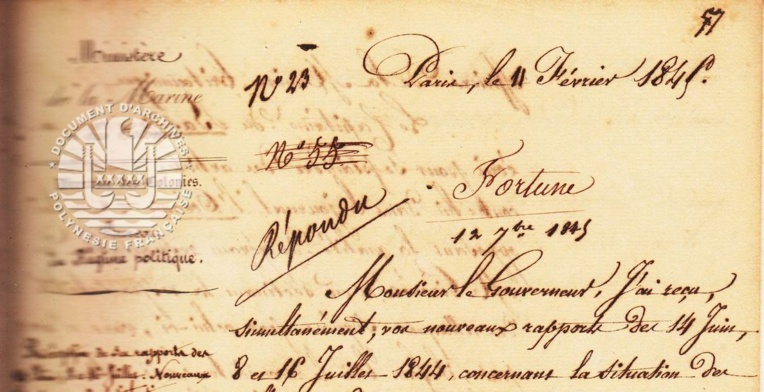 57
Ministère
de la Marine
Colonies.
Régime politique.
DOCUMENT D'ARCHIVES
POLYNESIE FRANÇAISE
N° 23
Paris, le 11 Février 1845.
N° 55
Répondu
Fortune
12 7bre 1845
Monsieur le Gouverneur, J'ai reçu,
simultanément, vos nouveaux rapports des 14 Juin,
8 et 16 Juillet 1844, concernant la situation des
rapports des
Juillet. Nouveaux